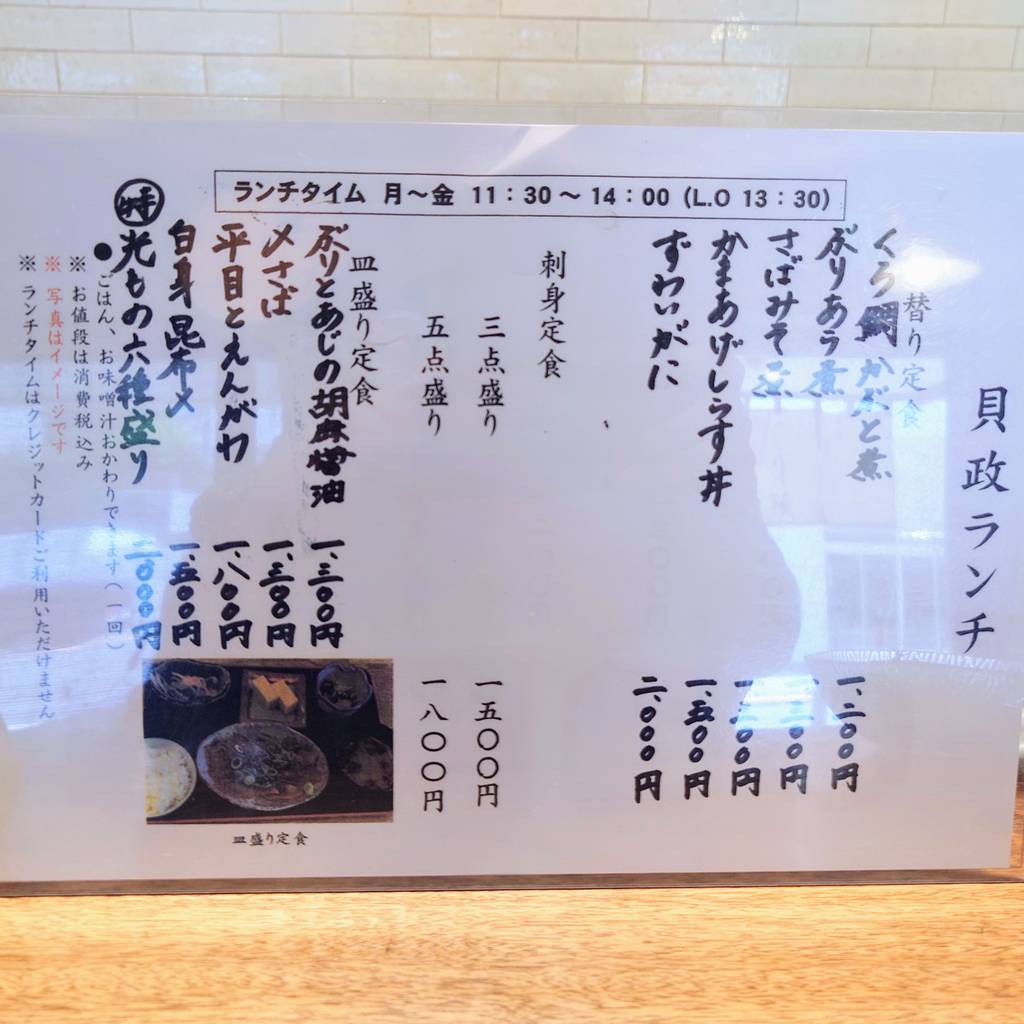 ランチタイム 月～金 11：30～14：00（L.O 13：30）
貝政ランチ
替り定食
くろ鯛かぶと煮 一、三〇〇円
ぶりあら煮 一、三〇〇円
さばみそ煮 一、三〇〇円
かまあげしらす丼 一、五〇〇円
ずわいがに 二、〇〇〇円
刺身定食
三点盛り 一五〇〇円
五点盛り 一八〇〇円
皿盛り定食
ぶりとあじの胡麻醤油 一、三〇〇円
〆さば 一、三〇〇円
平目とえんがわ 一、八〇〇円
白身昆布〆 一、五〇〇円
特 光もの六種盛り 二、〇〇〇円
●ごはん、お味噌汁おかわりできます（一回）
※ お値段は消費税込み
※ 写真はイメージです
※ ランチタイムはクレジットカードご利用いただけません
皿盛り定食